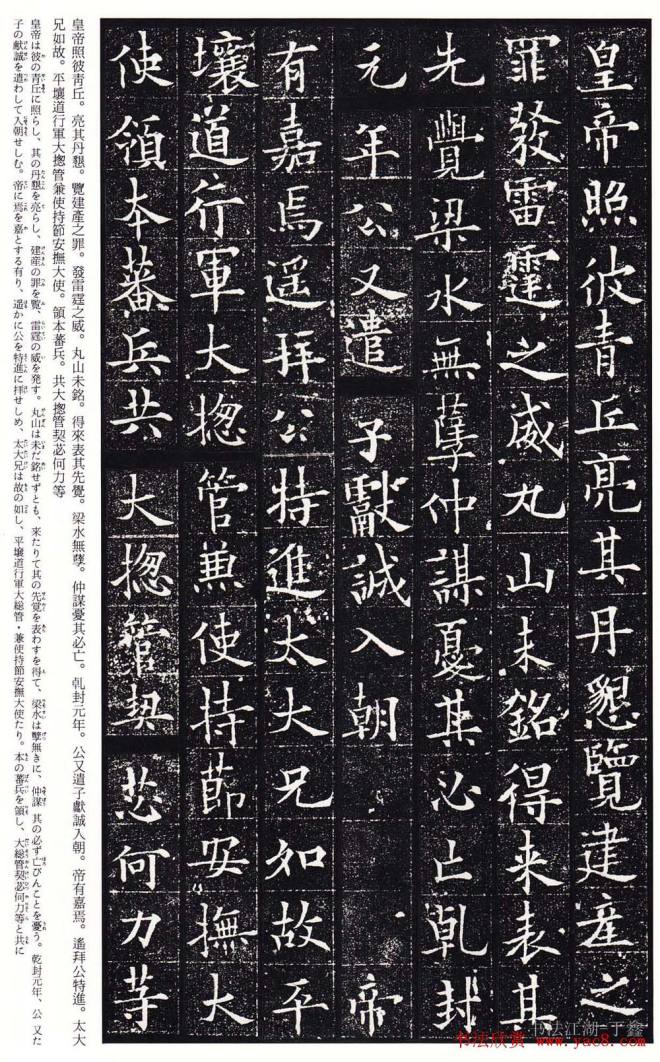 皇帝照彼青丘亮其丹懇覽建產之
罪發雷霆之威丸山未銘得来表其
先覺梁水無孽仲謀憂其必亡乹封
元年公又遣子獻誠入朝帝
有嘉焉遥拜公特進太大兄如故平
壤道行軍大揔管兼使持節安撫大
使領本蕃兵共大揔管契苾何力等
皇帝照彼靑丘。亮其丹懇。覽建產之罪。發雷霆之威。丸山未銘。得來表其先覺。梁水無孽。仲謀憂其必亡。乹封元年。公又遣子獻誠入朝。帝有嘉焉。遙拜公特進。太大
兄如故。平壤道行軍大揔管兼使持節安撫大使。領本蕃兵。共大揔管契苾何力等
皇帝は彼の青丘に照らし、其の丹懇を亮らし、建産の罪を覽、雷霆の威を発す。丸山は未だ銘せずとも、来たりて其の先覚を表わすを得て、梁水は孽無きに、仲謀 其の必ず亡びんことを憂う。乾封元年、公 又た
子の獻誠を遣わして入朝せしむ。帝に焉を嘉とする有り、遥かに公を特進に拝せしめ、太大兄は故の如し、平壤道行軍大総管・兼使持節安撫大使たり。本の蕃兵を領し、大総管契苾何力等と共に
书法江湖 于鑫
书法欣赏 www.yac8.com